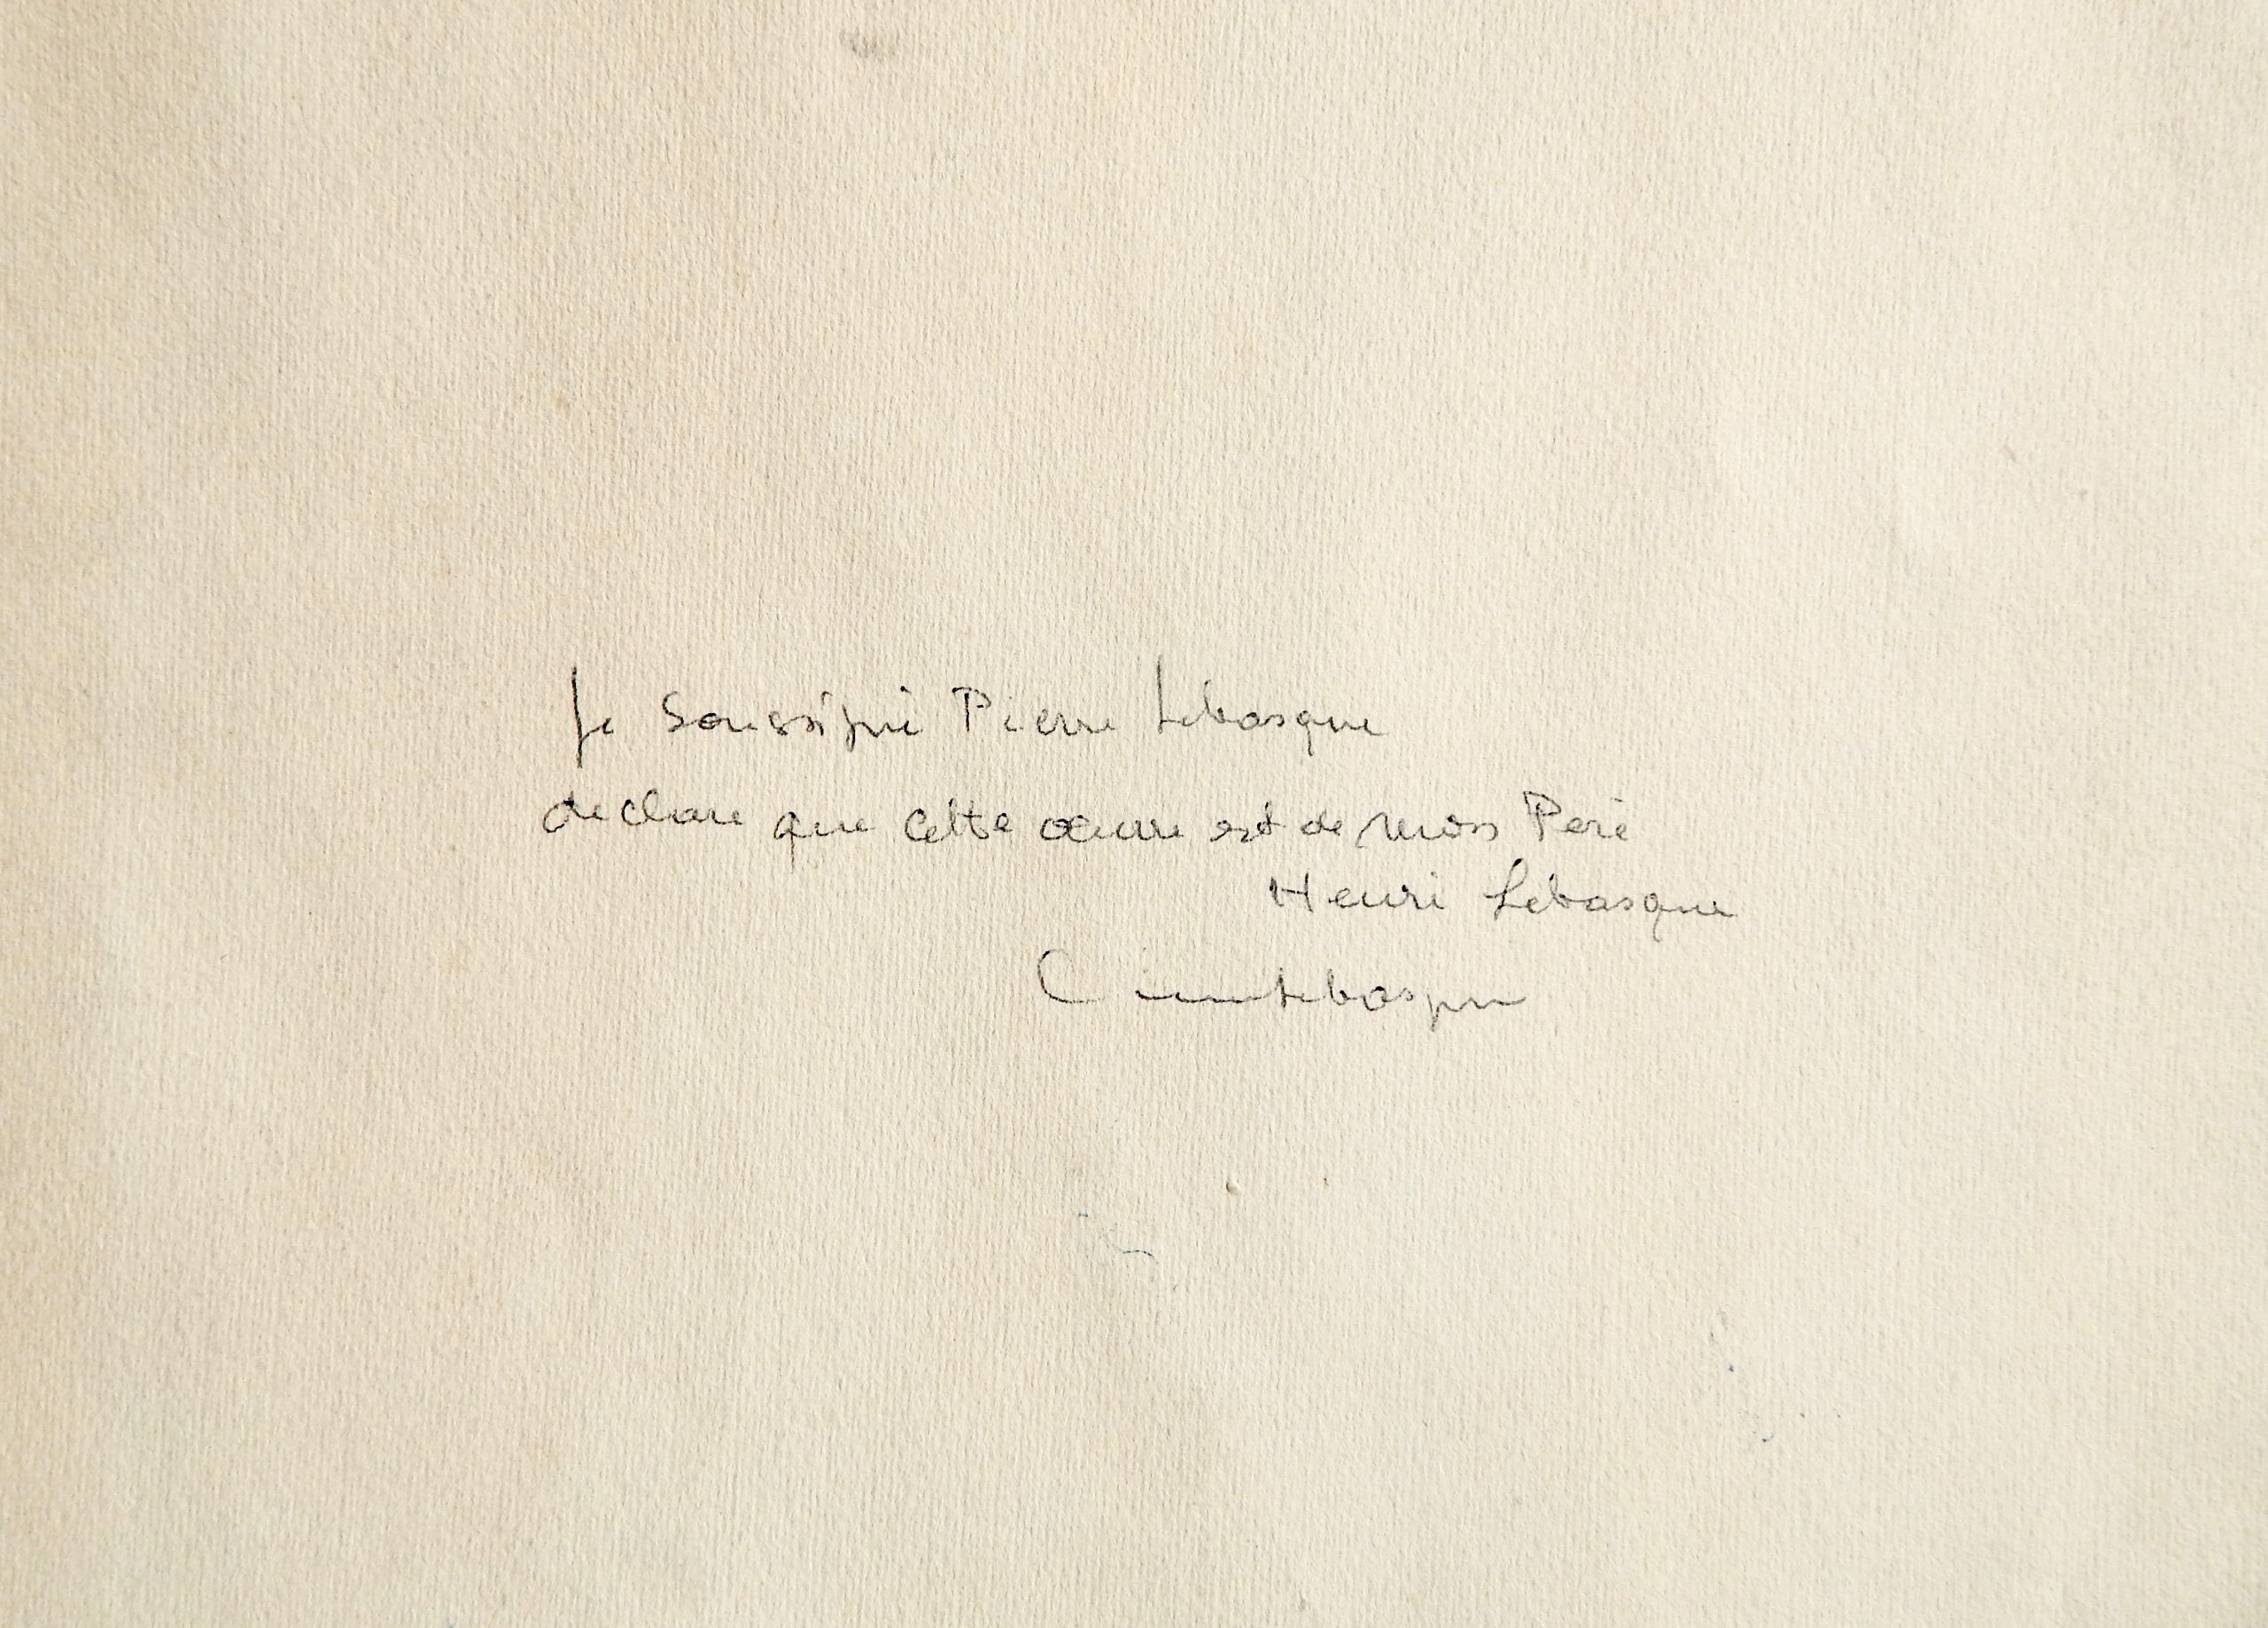 Je soussigné Pierre Lebasque
declare que cette œuvre est de mon Père
Henri Lebasque
Pierre Lebasque